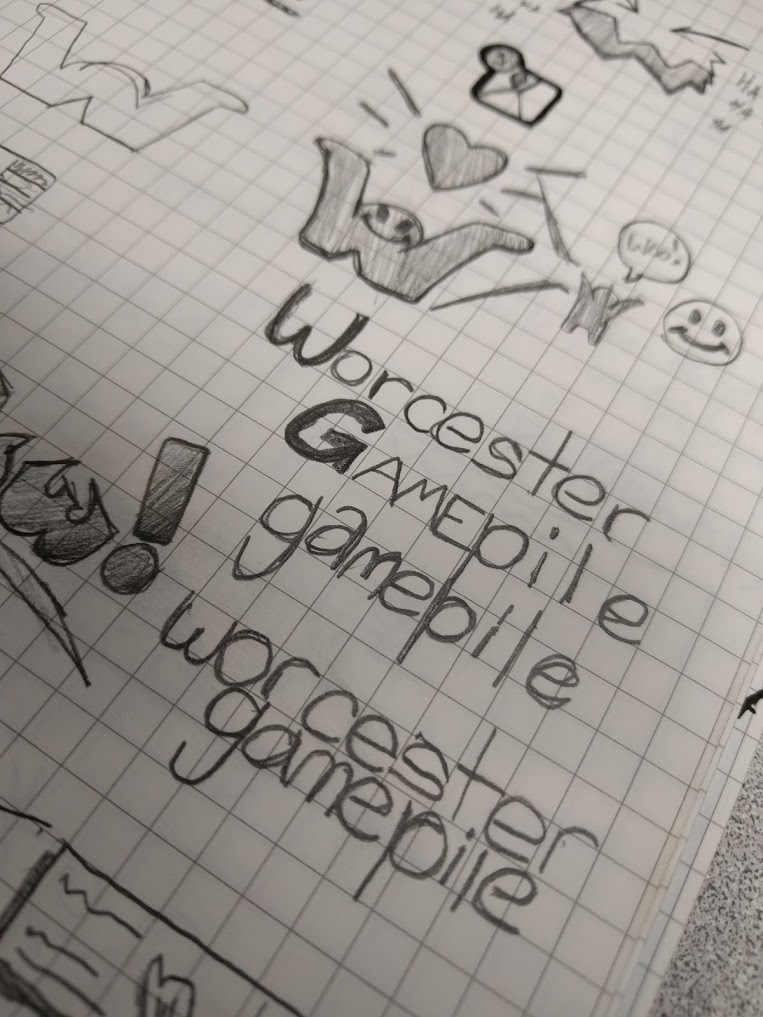 W
HA
HA
W
Woo!
Worcester
GAMEpile
gamepile
!
worcester
gamepile